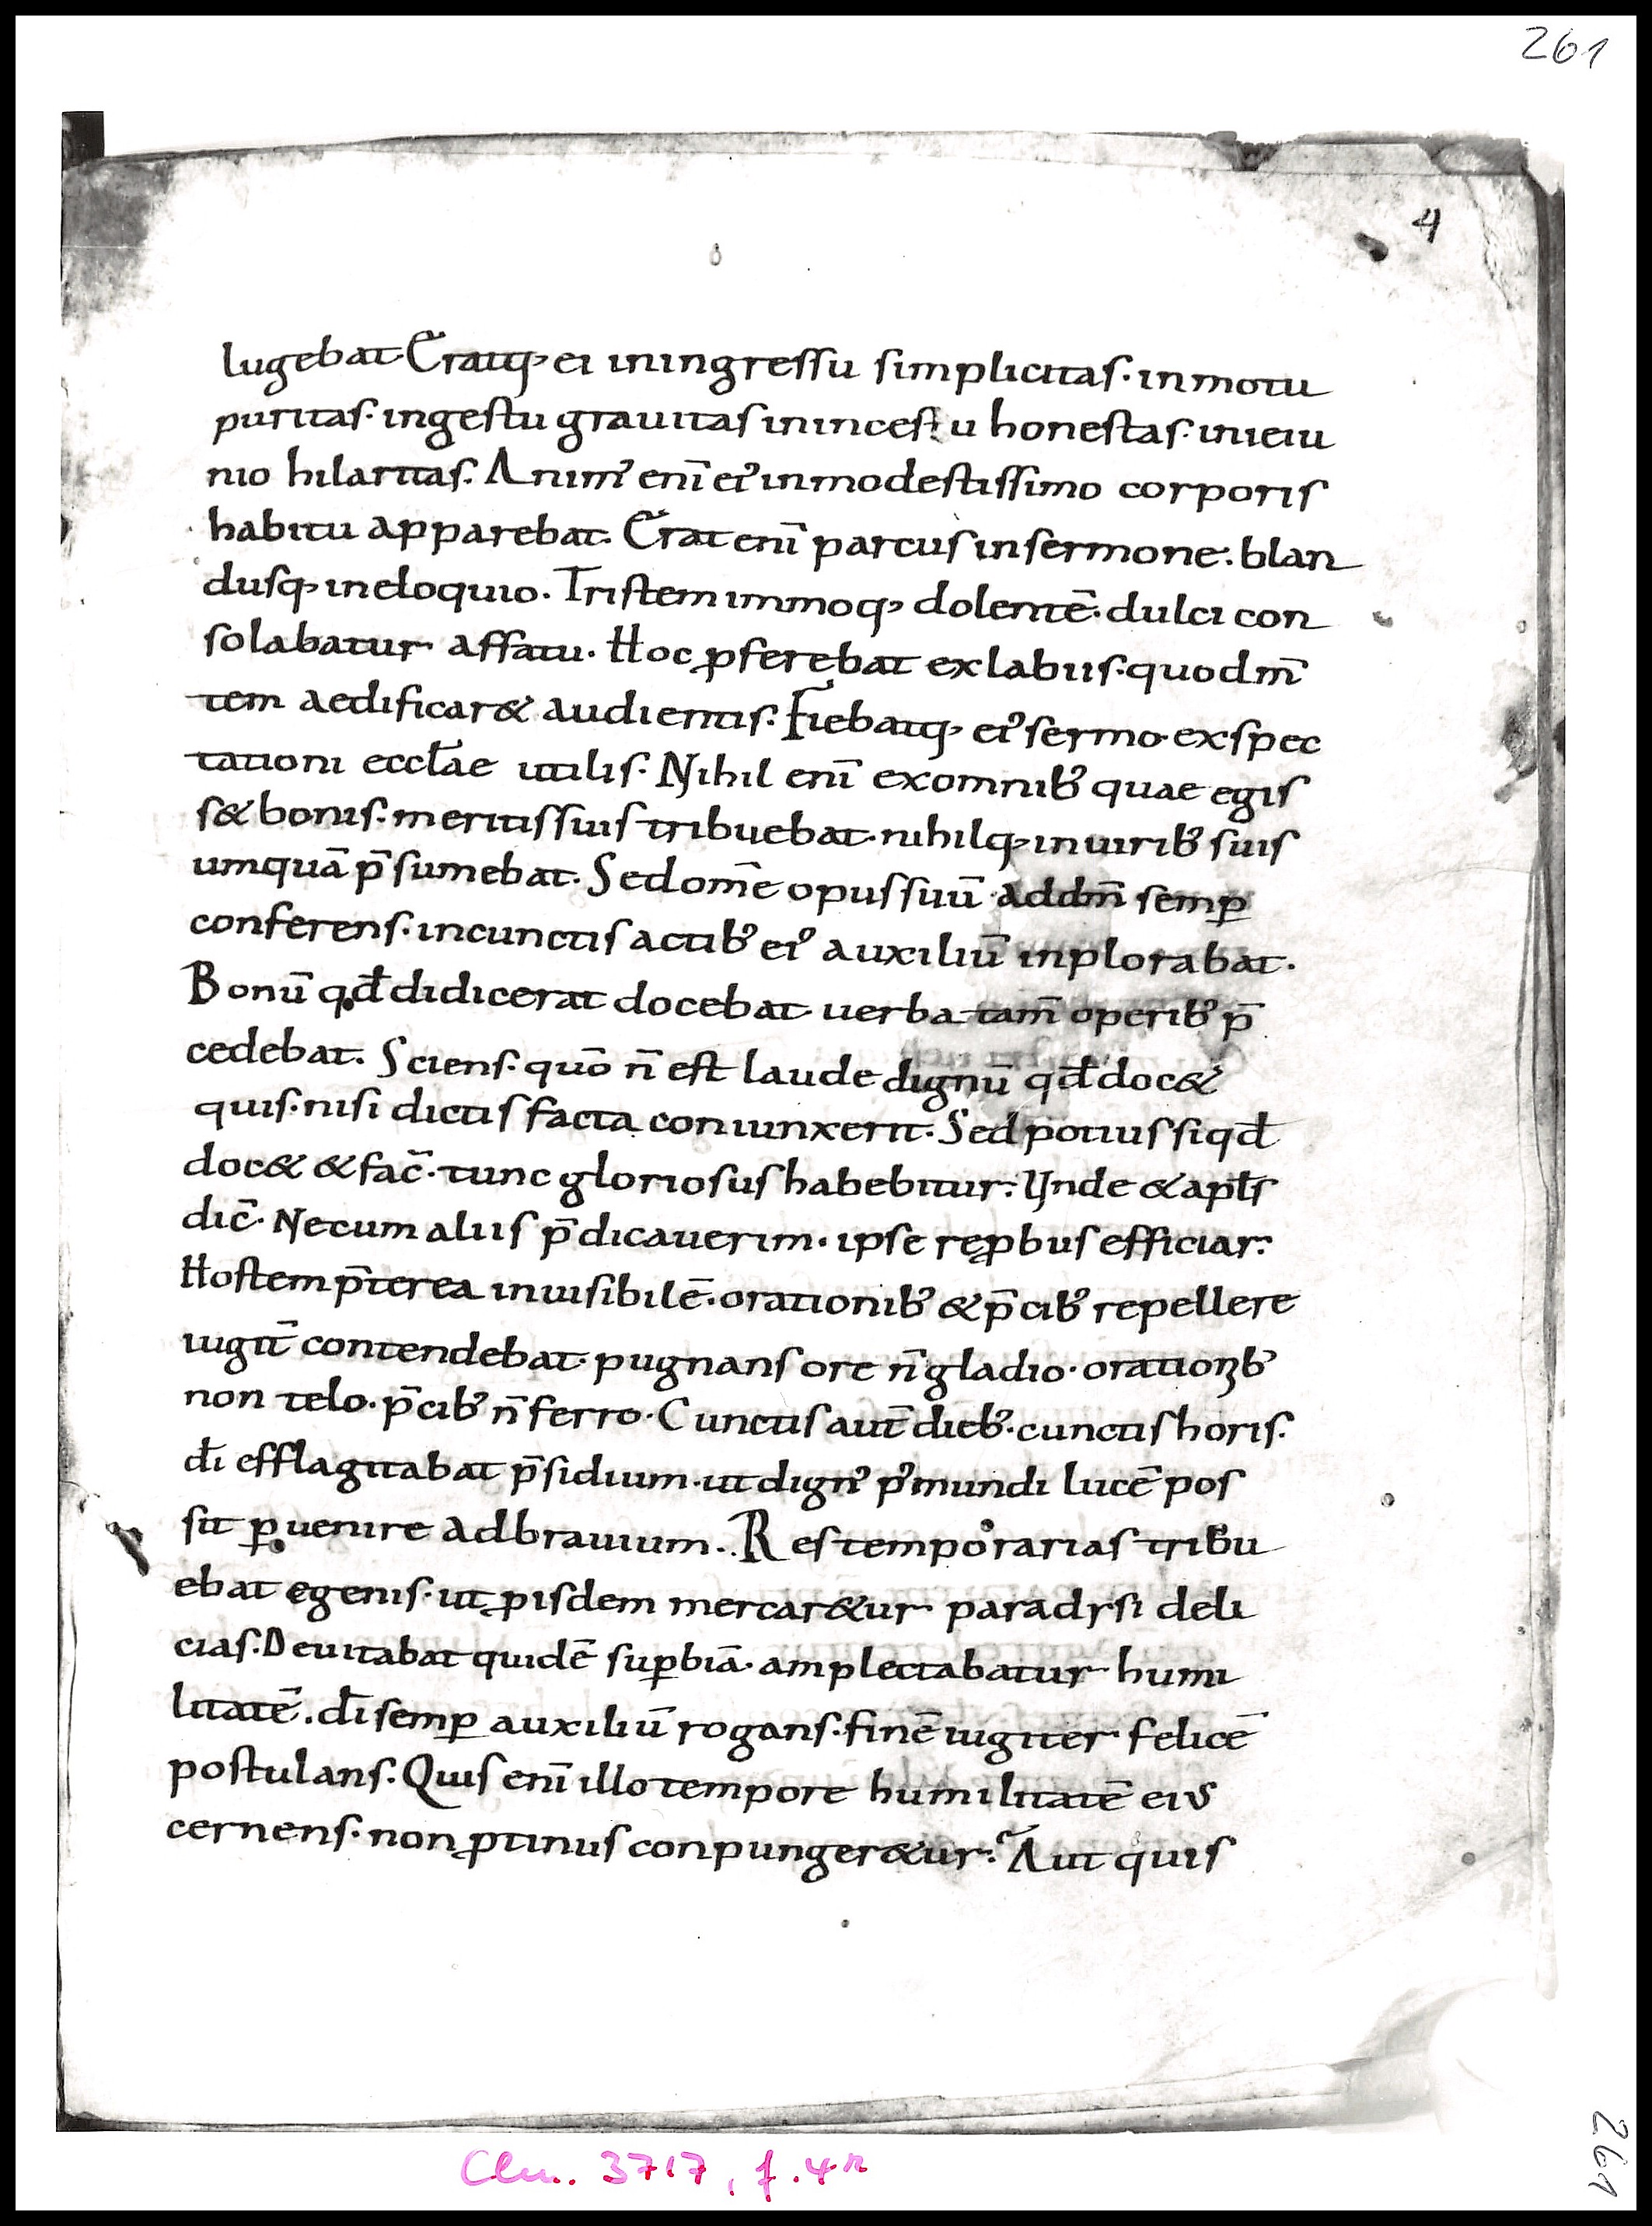 261
4
lugebat· Eratq; ei iningressu simplicitas· inmotu
puritas· ingestu grauitas inincestu honestas· inieiu
nio hilaritas. Animꝰ eni̅ eiꝰ inmodestissimo corporis
habitu apparebat. Erat eni̅ parcus insermone· blan
dusq; ineloquio. Tristem immoq; dolente̅· dulci con
solabatur affatu. Hoc ꝓferebat exlabiis· quodm̅
tem aedificar& audientis. Fiebatq; eiꝰ sermo exspec
tationi eccl̅ae utilis. Nihil eni̅ exomnibꝰ quae egis
s& bonis· meritis suis tribuebat· nihilq; inuiribꝰ suis
umqua̅ p̅sumebat. Sed om̅e opus suu̅ addm̅ semꝑ
conferens· incunctis actibꝰ eiꝰ auxiliu̅ inplorabat.
Bonu̅ qd̅ didicerat docebat· uerba tam̅ operibꝰ p̅
cedebat. Sciens· quo̅ n̅ est laude dignu̅ qd̅ doc&
quis· nisi dictis facta coniunxerit. Sed potius siqd̅
doc& & fac̅· tunc gloriosus habebitur. Unde & apl̅s
dic̅· Necum aliis p̅dicauerim· ipse reꝓbus efficiar.
Hostem p̅terea inuisibile̅· orationibꝰ & p̅cibꝰ repellere
iugit̅ contendebat· pugnans ore n̅ gladio· orationibꝰ
non telo· p̅cibꝰ n̅ ferro. Cunctis aut̅ diebꝰ· cunctis horis.
di̅ efflagitabat p̅sidium· ut dignꝰ pꝰ mundi luce̅ pos
sit ꝑuenire adbrauium. Res temporarias tribu
ebat egenis· ut ꝑisdem mercar&ur paradysi deli
cias. Deuitabat quide̅ suꝑbia̅· amplectabatur humi
litate̅. di̅ semꝑ auxiliu̅ rogans· fine̅ iugiter felice̅
postulans. Quis eni̅ illo tempore humilitate̅ eius
cernens· non ꝓtinus conpunger&ur? Aut quis
Clm. 3717, f. 4r
261